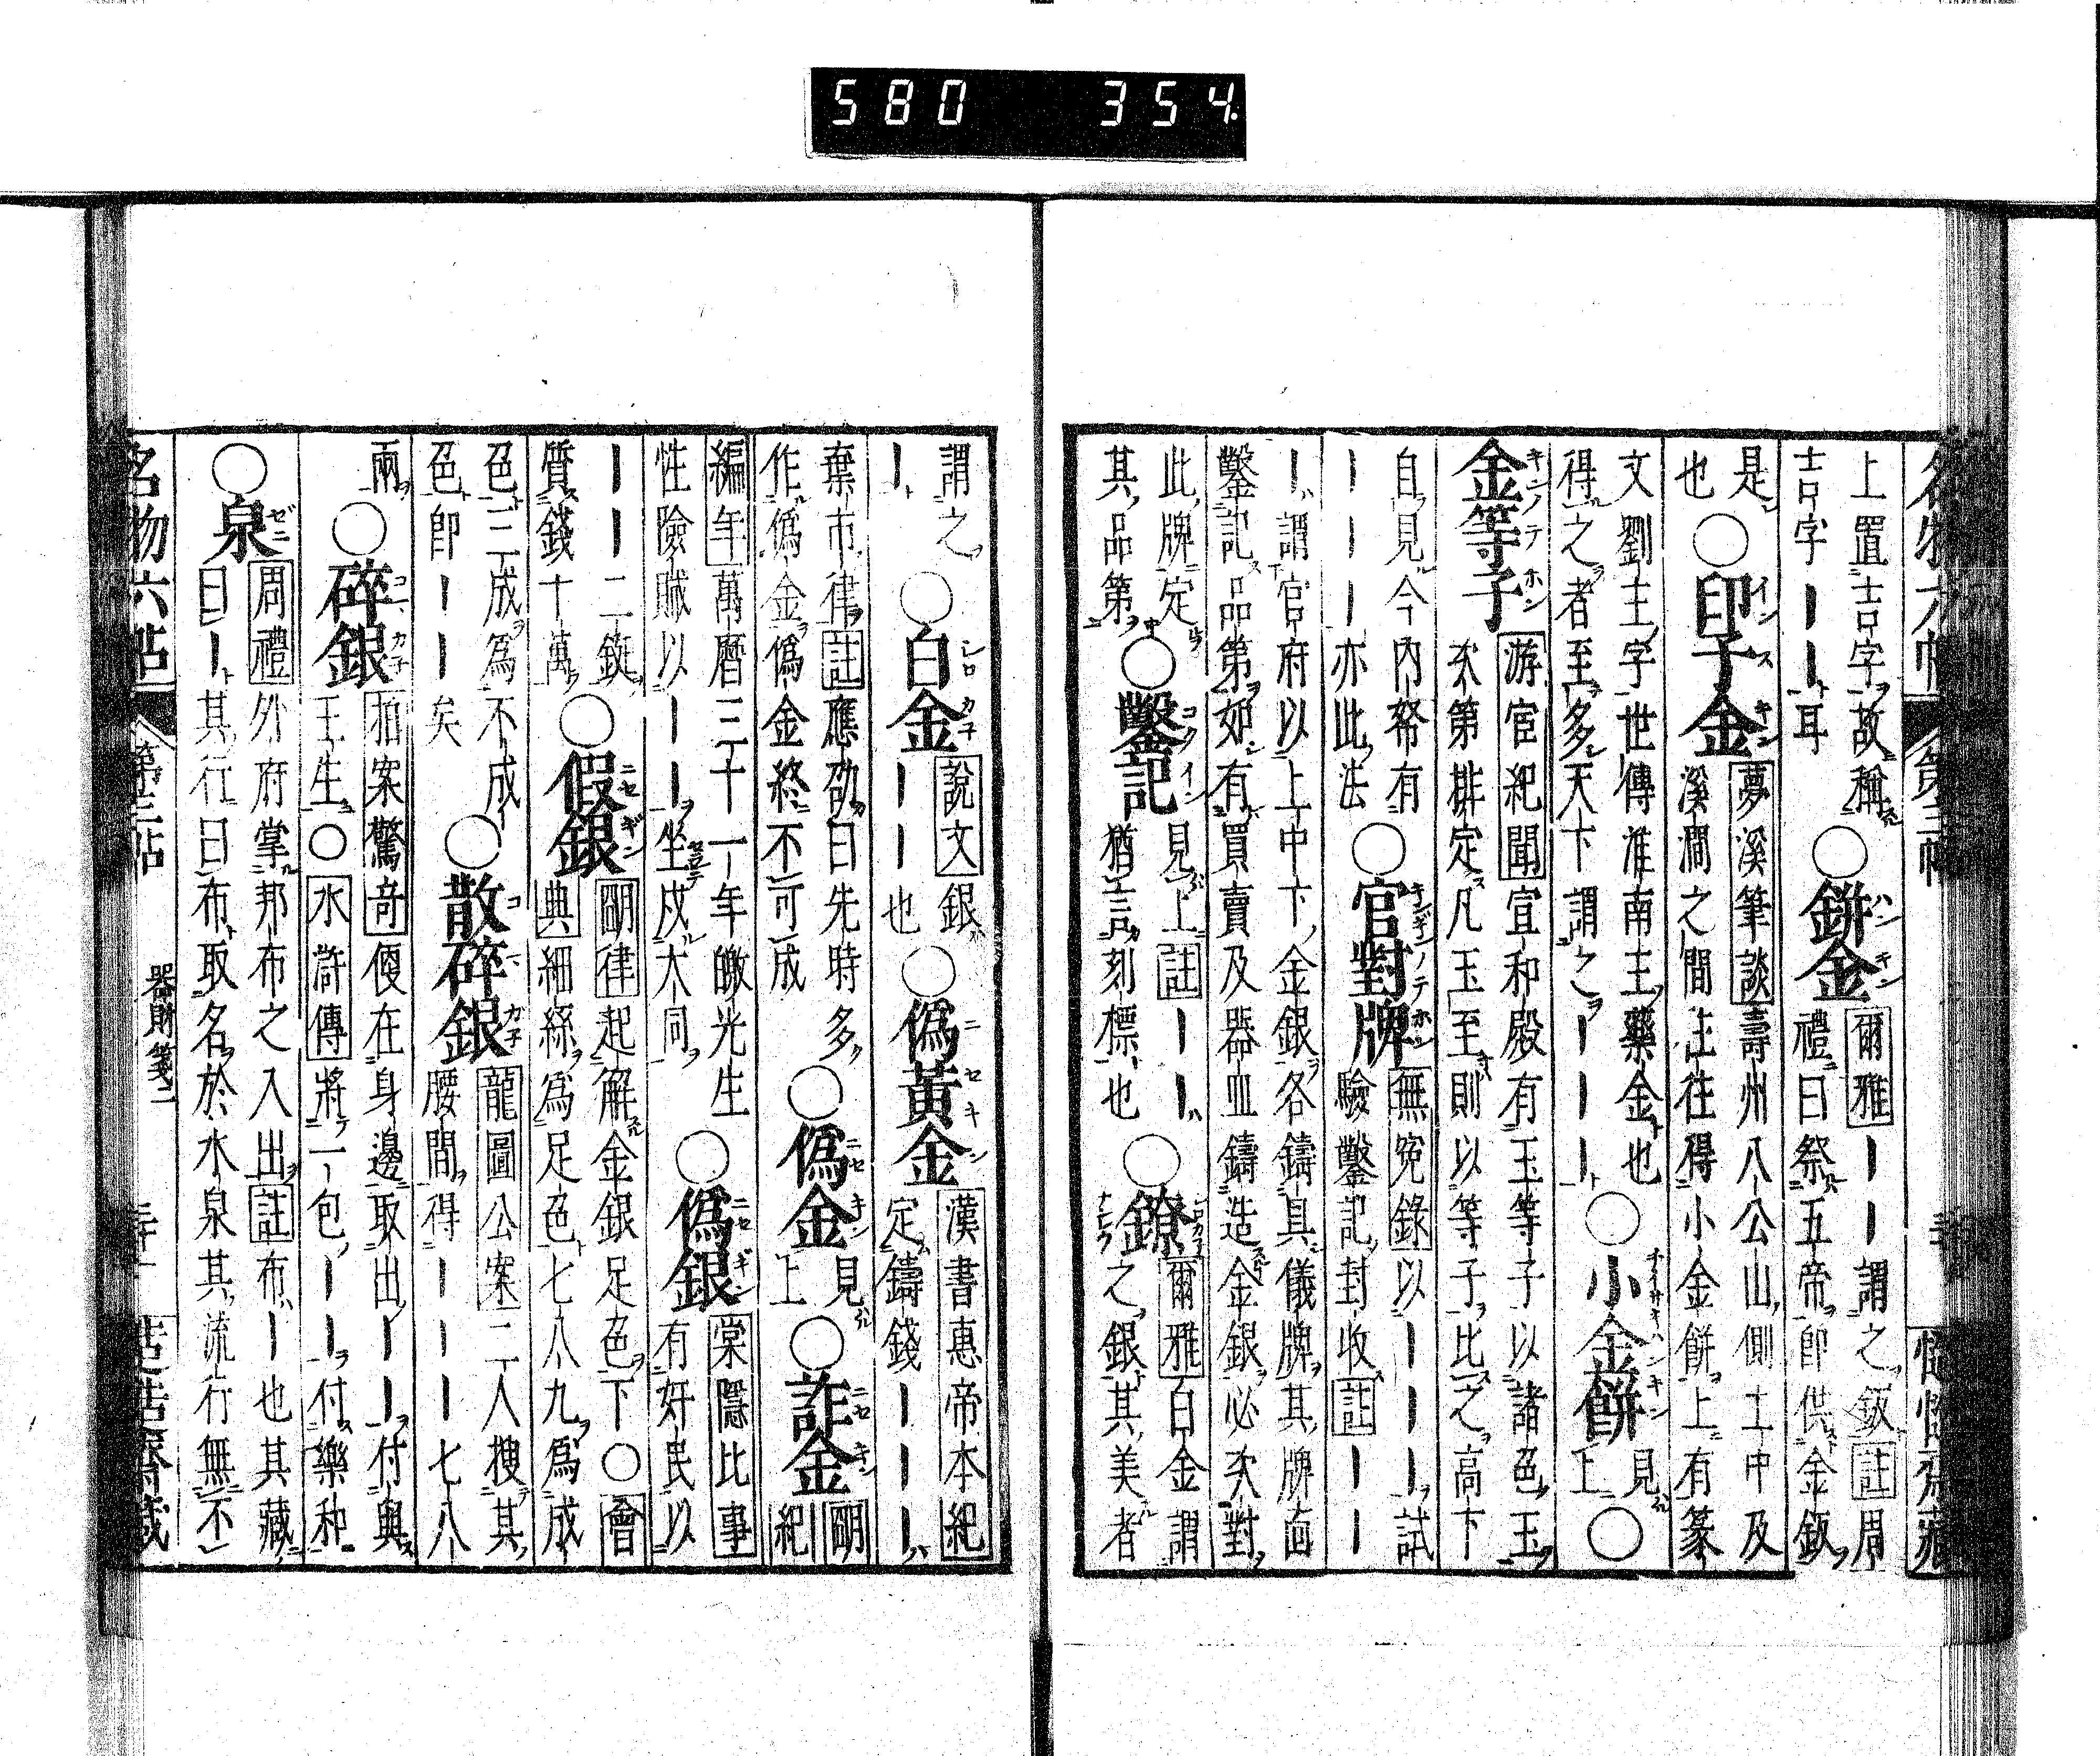 名物六帖 第三帖 慥慥齋藏
上置吉字故稱
吉字︱︱耳
〇鉼金
爾雅︱︱謂之鈑註周
禮曰祭五帝即供金鈑
是
也
〇印子金
夢溪筆談壽州八公山側土中及
溪澗之間往往得小金餅上有篆
文劉主字世傳淮南王藥金也
得之者至多天下謂之︱︱︱
〇小金餅
見
上
〇
金等子
游宦紀聞宣和殿有玉等子以諸色玉
次第排定凡玉至則以等子比之高下
自見今內帑有
︱︱︱亦此法
〇官對牌
無冤錄以︱︱︱試
驗鑿記封收註︱︱
︱謂官府以上中下金銀各鑄具儀牌其牌面
鑿記品第如有買賣及器皿鑄造金銀必次對
此牌定
其品第
〇鑿記
見上註︱︱
猶言刻標也
〇鐐
爾雅白金謂
之銀其美者
謂之
︱
〇白金
說文銀
︱︱也
〇偽黃金
漢書惠帝本紀
定鑄錢︱︱︱
棄市律註應劭曰先時多
作偽金偽金終不可成
〇偽金
見
上
〇詐金
明
紀
編年萬曆三十一年皦光生
性險賊以︱︱坐戍大同
〇偽銀
棠隱比事
有奸民以
︱︱二錠
質錢十萬
〇假銀
明律起解金銀足色下〇會
典細絲為足色七八九為成
色三成為不成
色即︱︱矣
〇散碎銀
龍圖公案二人搜其
腰間得︱︱︱七八
兩
〇碎銀
拍案驚奇便在身邊取出︱︱付與
王生〇水滸傳將一包︱︱付樂和
〇泉
周禮外府掌邦布之入出註布︱也其藏
曰︱其行曰布取名於水泉其流行無不
名物六帖 第三帖 器財箋二 慥慥齋藏
580 354